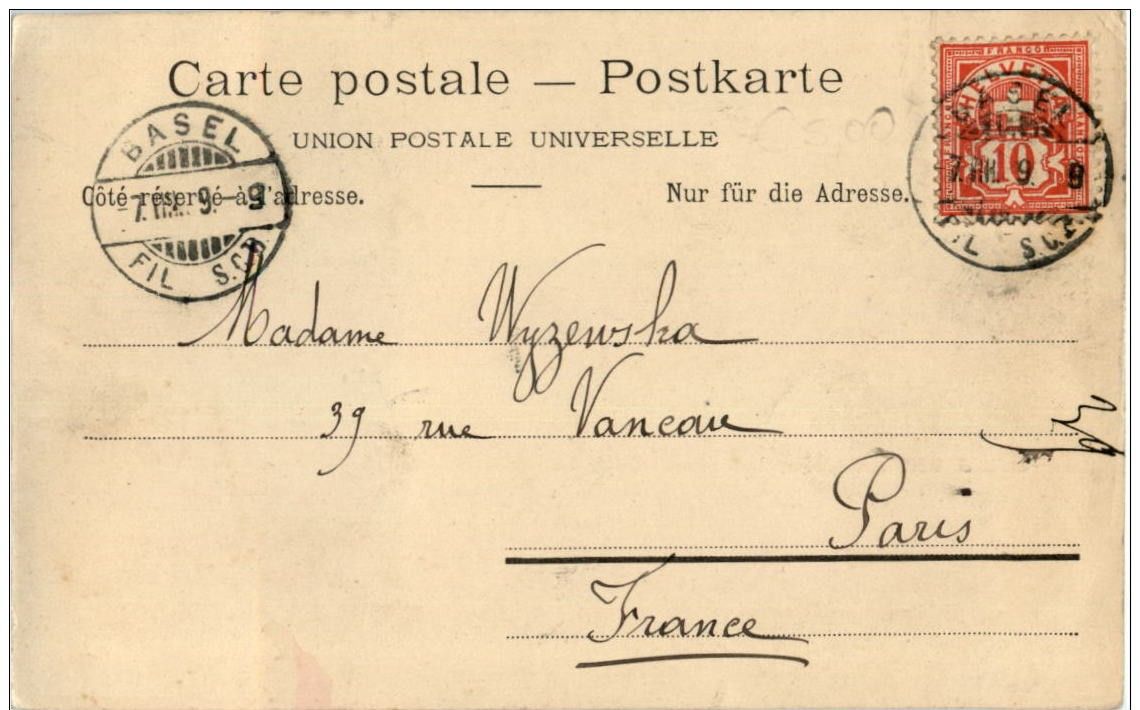 Carte postale — Postkarte
UNION POSTALE UNIVERSELLE
Côté réservé à l'adresse.
Nur für die Adresse.
BASEL
9
FIL S.C.F.
FRANCO
HELVETIA
FRANCO
FRANCO
10
BASEL
9
FIL S.C.F.
Madame Wyzewska
39 rue Vaneau
Paris
France